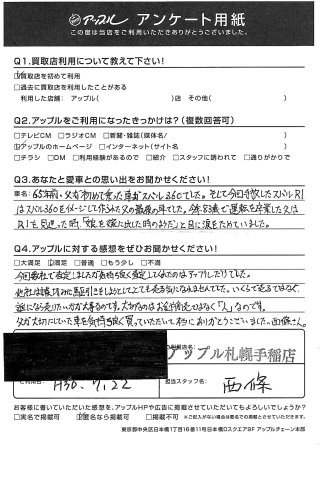 アップル アンケート用紙
この度は当店をご利用いただきありがとうございました。
Q1.買取店利用について教えて下さい!
☑買取店を初めて利用
□過去に買取店を利用したことがある
利用した店舗: アップル( )店 その他( )
Q2.アップルをご利用になったきっかけは?(複数回答可)
□テレビCM □ラジオCM □新聞・雑誌(媒体名/ )
☑アップルのホームページ □インターネット(サイト名 )
□チラシ □DM □利用経験があるので □紹介 □スタッフに誘われて □通りがかりで
Q3.あなたと愛車との思い出をお聞かせください!
車名: 65年前、父が初めて買った車がスバル360でした。そして今回手放したスバルR1
はスバル360をイメージして作られた父の最後の車でした。今年83歳で運転を卒業した父は
R1を見送った時、「娘を嫁に出した時のようだ」と目に涙をためていました。
Q4.アップルに対する感想をぜひお聞かせください!
□大満足 ☑満足 □普通 □もう少し □不満
今回数社で査定しましたが気持ち良く査定してくれたのはアップルだけでした。
他社は駆け引きをしようとしてとても売る気になれませんでした。いくらで売るではなく、
誰になら売りたいかが大事なのです。大切なのはお金や商売ではなく「人」なのです。
父が大切にしていた車を気持ち良く買っていただいて本当にありがとうございました。西條さん。
アップル札幌手稲店
ご利用日 H30.7.22
担当スタッフ名 西條
お客様に書いていただいた感想を、アップルHPや広告に掲載させていただいてもよろしいでしょうか?
□実名で掲載可 ☑匿名なら掲載可 □掲載不可 ※ご記入がない場合は匿名での掲載とさせていただきます。
東京都中央区日本橋1丁目16番11号日本橋Dスクエア9F アップルチェーン本部